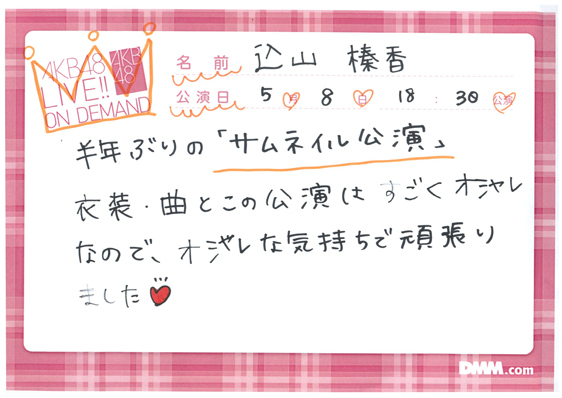 AKB48
LIVE!!
ON DEMAND
AKB
48
名前 込山 榛香
公演日 5月 8日 18:30 公演
半年ぶりの「サムネイル公演」
衣装・曲とこの公演はすごくオシャレ
なので、オシャレな気持ちで頑張り
ました
DMM.com